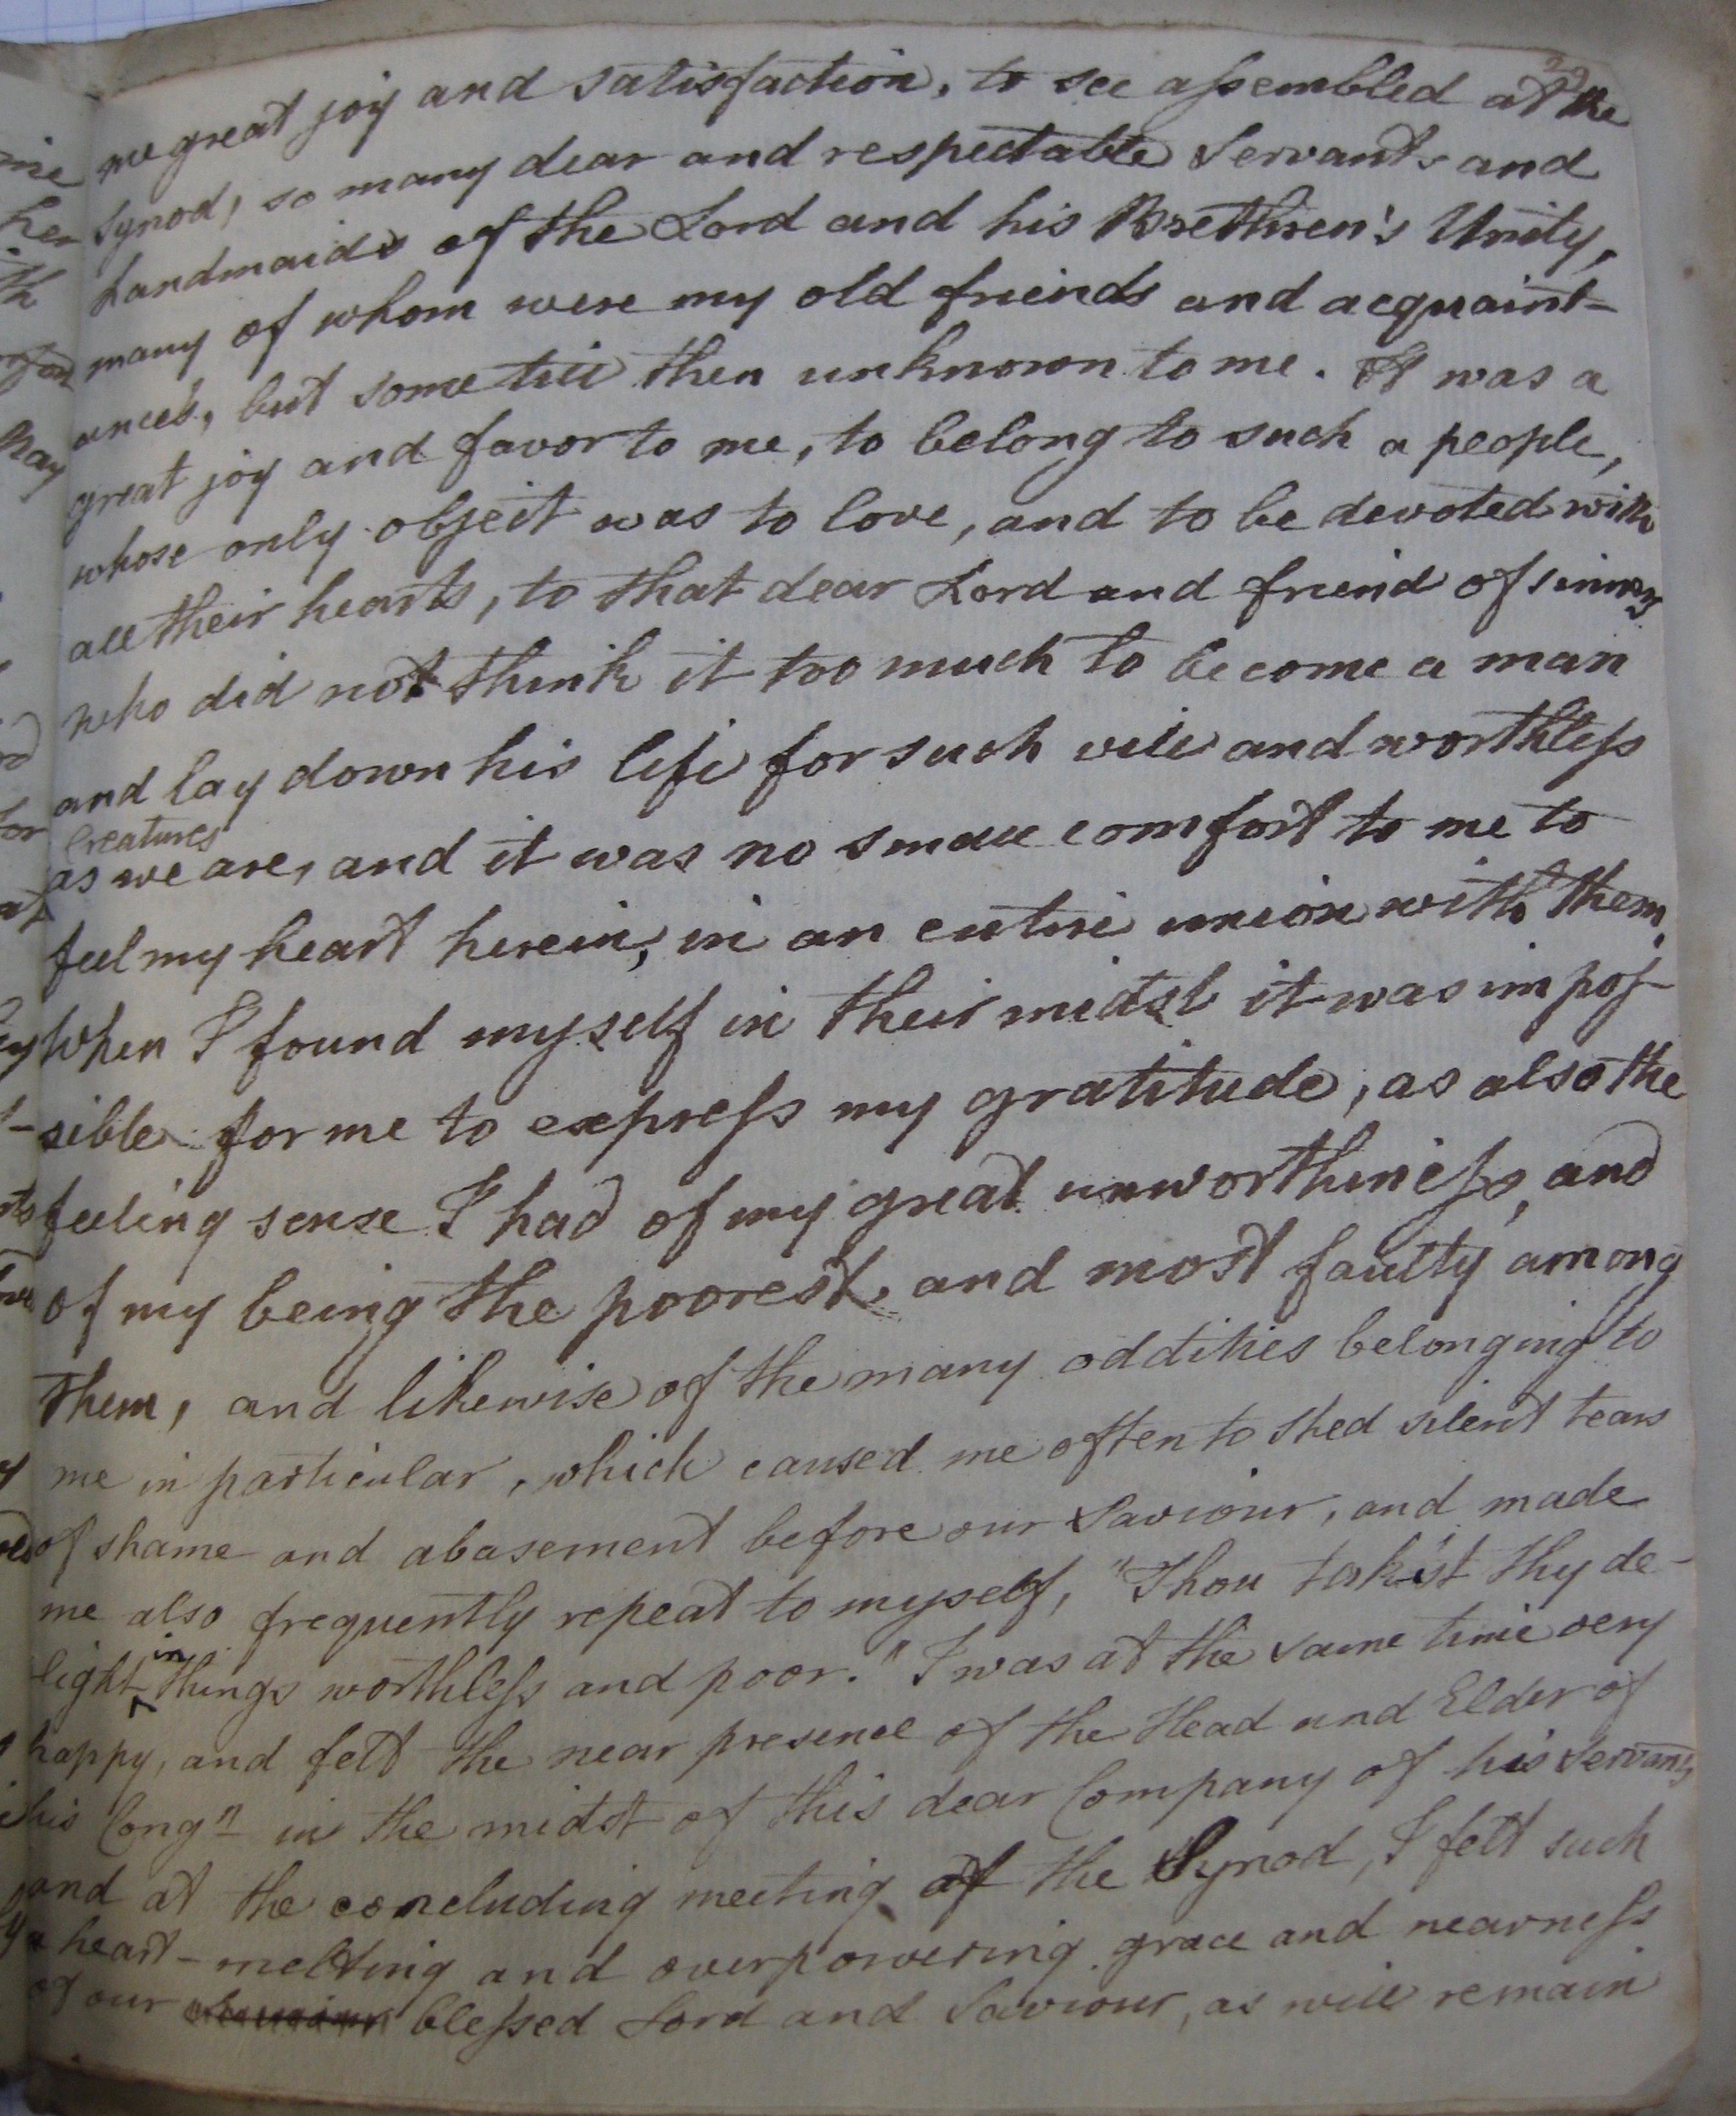 me great joy and satisfaction, to see assembled at the
Synod, so many dear and respectable Servants and
handmaids of the Lord and his Brethren's Unity,
many of whom were my old friends and acquaint-
ances, but some till then unknown to me. It was a
great joy and favor to me, to belong to such a people,
whose only object was to love, and to be devoted with
all their hearts, to that dear Lord and friend of sinners
who did not think it too much to become a man
and lay down his life for such vile and worthless
creatures
as we are, and it was no small comfort to me to
feel my heart herein, in an entire union with them.
When I found myself in their midst it was impos-
sible for me to express my gratitude, as also the
feeling sense I had of my great unworthiness, and
of my being the poorest, and most faulty among
them, and likewise of the many oddities belonging to
me in particular, which caused me often to shed silent tears
of shame and abasement before our Saviour, and made
me also frequently repeat to myself, "Thou tak'st thy de-
light in things worthless and poor." I was at the same time very
happy, and felt the near presence of the Head and Elder of
his Congn in the midst of this dear Company of his Servants
and at the concluding meeting of the Synod, I felt such
a heart-melting and overpowering grace and nearness
of our blessed Lord and Saviour, as will remain